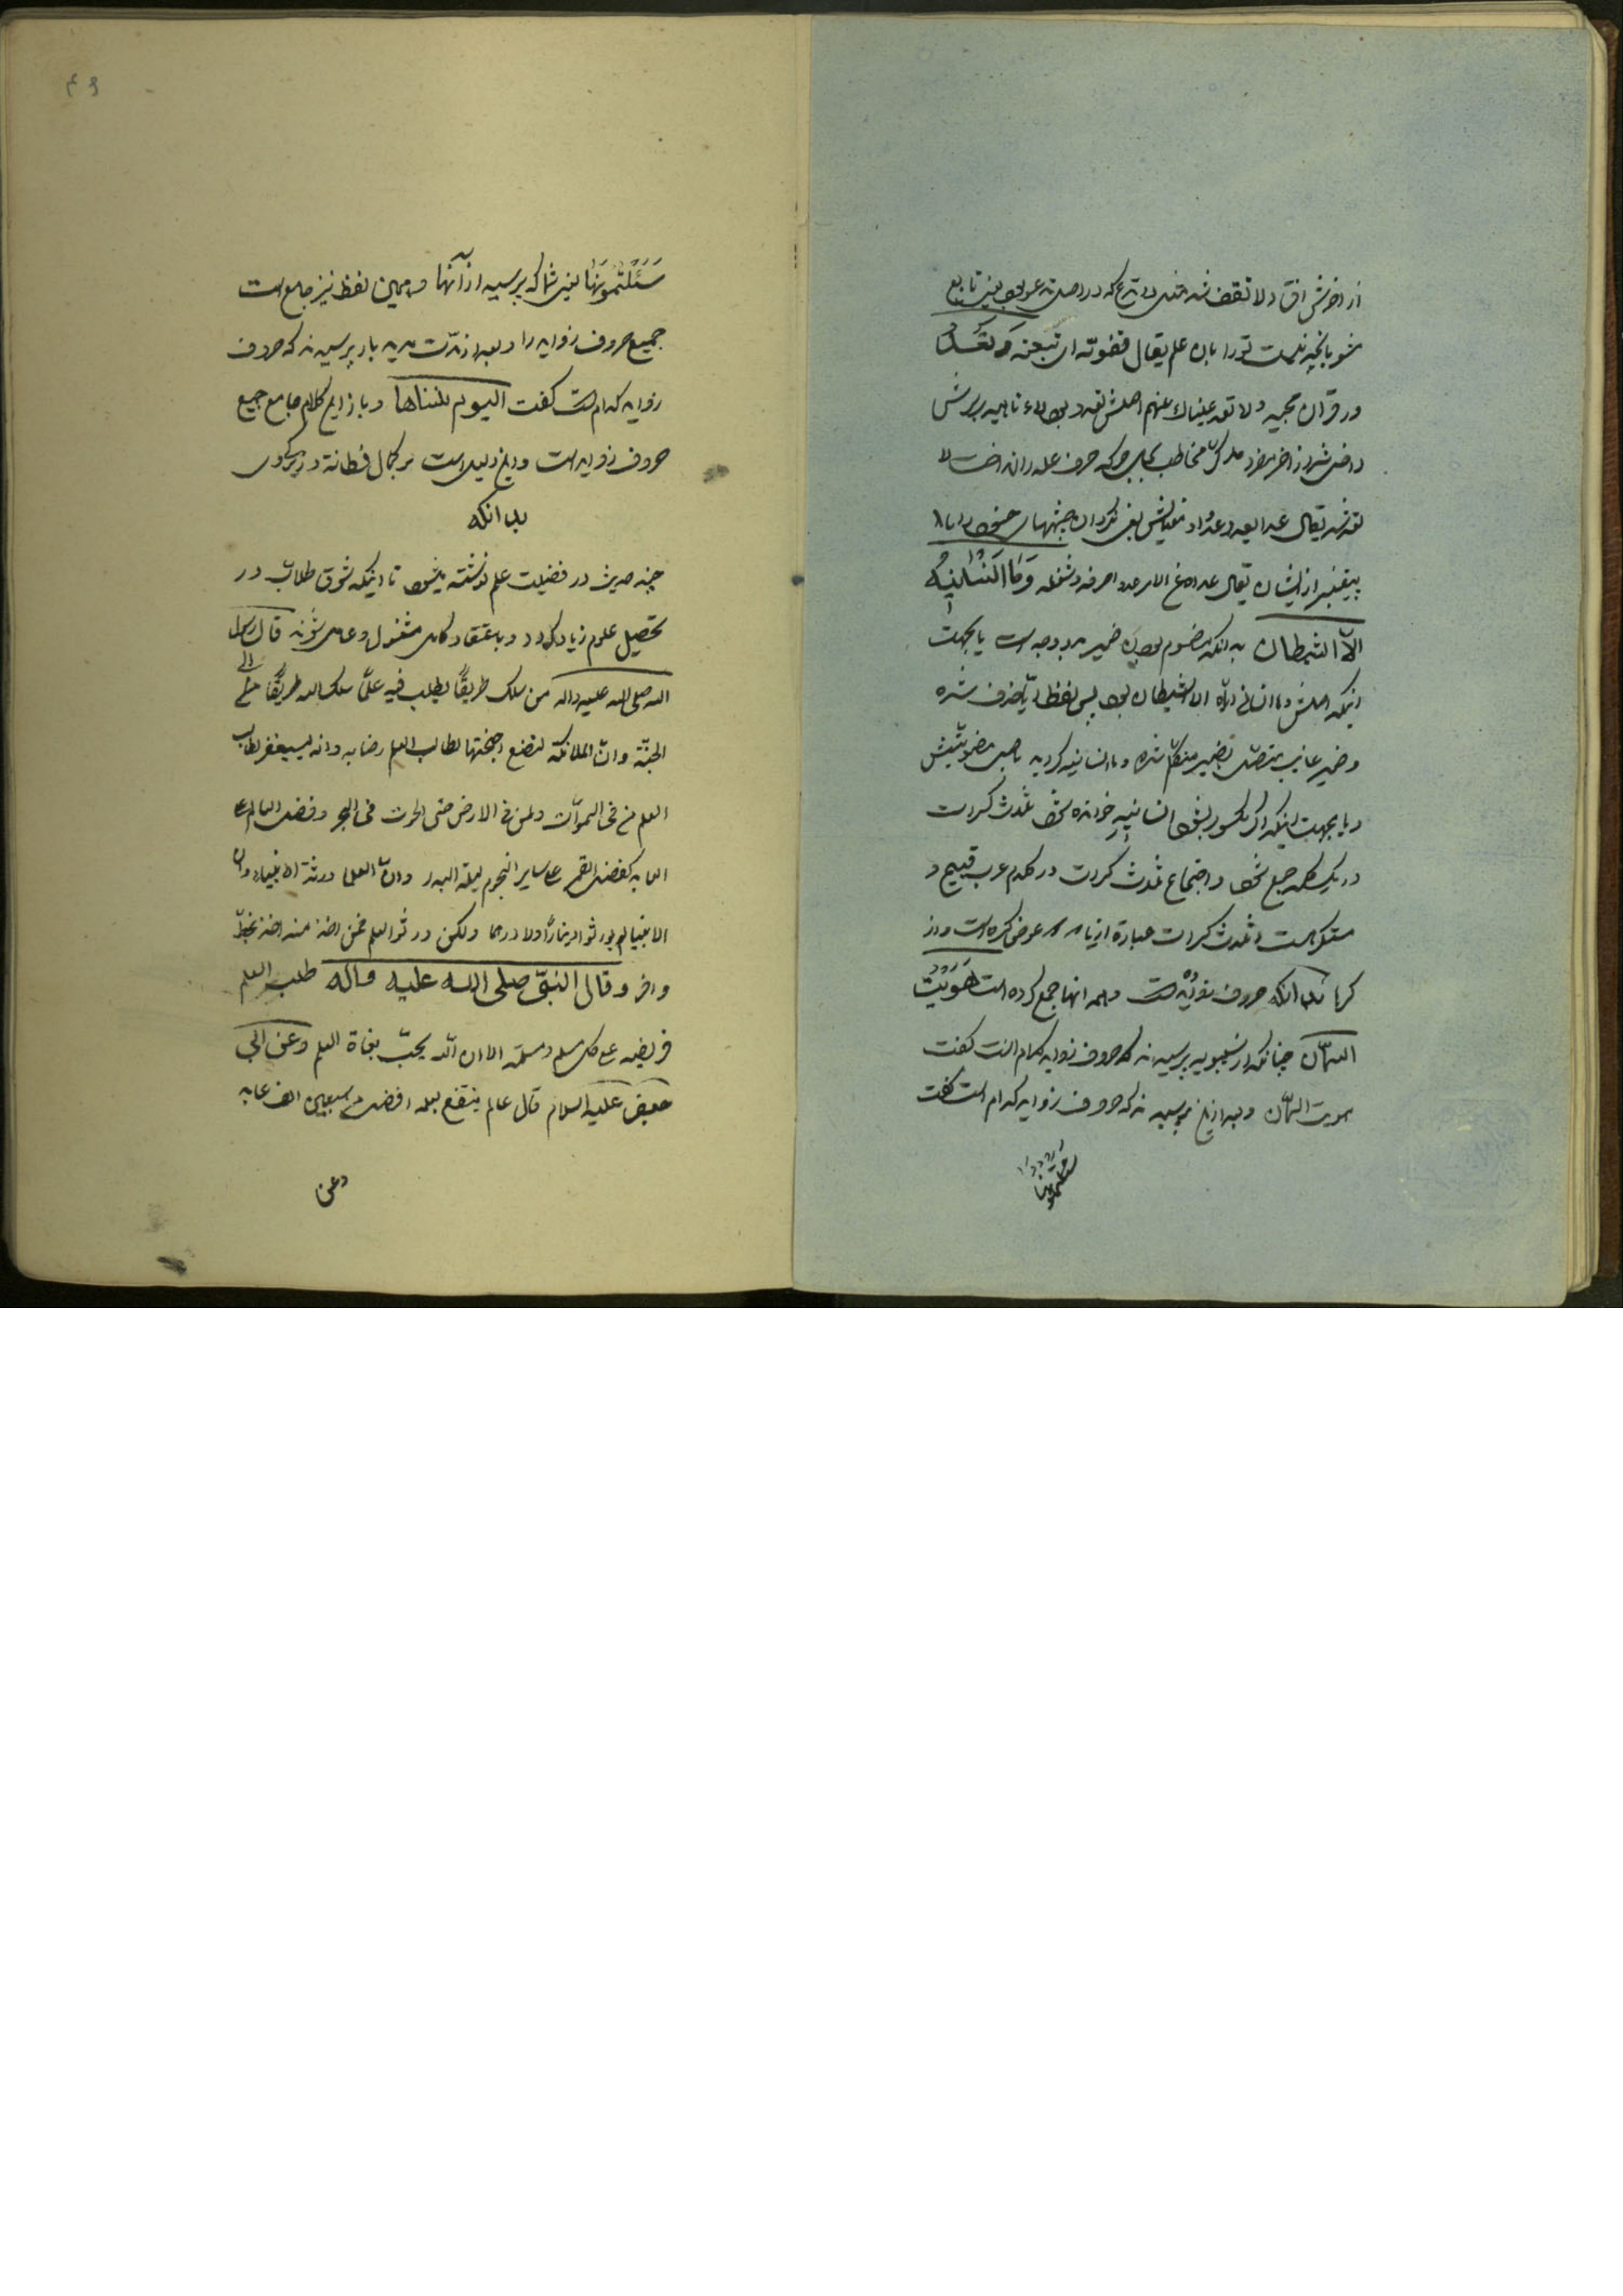 از اخرش افتاد ولا تقف شد مثل لا تدع که در اصل تدعو بود یعنی تابع
مشو بانچه نیست تو را بان علم یقال قفوته ای تبعته وَ لا تَعْدُ
در قران مجید ولا تعد عیناک عنهم اصلش تعدو بود لاء ناهیه بر سرش
داخل شد از اخر مفرد مذکر مخاطب که حرف عله را انداخت لا
تعد شد یقال عدا یعدو معنایش یعنی نگردان چشمهای خود را با
پیغمبر از ایشان یقال عداه عن الامر صرفه و شغله وَمٰا اَنْسٰانیٖهُ
الّا الشّیطان بدانکه مضموم بودن ضمیر بدو وجه است یا بجهت
اینکه اصلش و ما انسانی ایّاه الا الشیطان بود پس لفظ ایّا حذف شده
و ضمیر غایب متصل بضمیر متکلم شده و ما انسانیه گردیده
و یا بجهت اینکه اگر مکسور بشود انسانیهِ خوانده شود ثلاث کسرات
در یک کلمه جمع شود و اجتماع ثلاث کسرات در کلام عرب قبیح و
مستکره است و ثلاث کسرات عبارة از یا
کرها بدانکه حروف زوایده است و همه انها جمع کرده است هَوَیْتُ
السّمان چنانکه از سیبویه پرسیدند که حروف زواید کدام است گفت
هویت السّمان و بعد ازین پرسیدند که حروف زواید کدام است گفت
سئلتمونیها
سَئَلْتُمُونیهٰا یعنی شما که پرسیدید از آنها و همین لفظ نیز جامع است
جمیع حروف زواید را و بعد از مدّت مدید باز پرسیدند که حروف
زواید کدام است گفت الیوم تنساها و باز این کلام جامع جمیع
حروف زواید است و این دلیل است بر کمال فطانة و زیرکی
بدانکه
چند حدیث در فضیلت علم نوشته میشود تا اینکه شوق طلاب در
تحصیل علوم زیاد گردد و باعتقاد کامل مشغول و عامل شوند قال رسول
الله صلی الله علیه واله من سلک طریقًا یطلب فیه علمًا سلک الله طریقًا الی
الجنّة وانّ الملائکة لتضع اجنحتها لطالب العلم رضا به وانه لیستغفر لطالب
العلم من فی السموات ومن فی الارض حتی الحوت فی البحر وفضل العالم علی
العابد کفضل القمر علی سایر النجوم لیلة البدر وانّ العلماء ورثة الانبیاء وان
الانبیا لم یورثوا دینارًا ولا درهما ولکن ورثوا العلم فمن اخذ منه اخذ بحظّ
وافر وقال النبیّ صلی الله علیه وآله طلب العلم
فریضة علی کل مسلم ومسلمة الا ان الله یحبّ بغاة العلم وعن ابی
جعفر علیه السلام قال عالم ینتفع بعلمه افضل من سبعین الف عابد
وعن